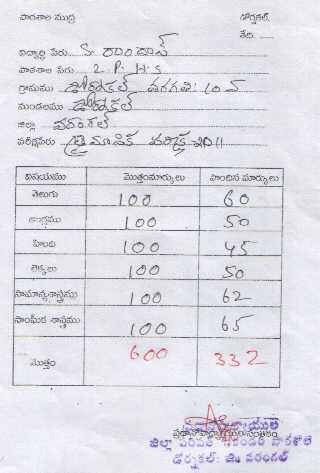 పాఠశాల ముద్ర డోర్నకల్.
తేది:......
విద్యార్థి పేరు S. రాందాస్
పాఠశాల పేరు Z. P. H. S
గ్రామము డోర్నకల్ తరగతి: 10వ
మండలము డోర్నకల్
జిల్లా వరంగల్
పరీక్షపేరు త్రైమాసిక పరీక్ష 2011
విషయము మొత్తంమార్కులు పొందిన మార్కులు
తెలుగు 100 60
ఆంగ్లము 100 50
హింది 100 45
లెక్కలు 100 50
సామాన్యశాస్త్రము 100 62
సాంఘిక శాస్త్రము 100 65
మొత్తం 600 332
ప్రధానోపాధ్యాయుల సంతకం
జిల్లా పరిషత్ సెకండరి పాఠశాల
డోర్నకల్: జి॥ వరంగల్